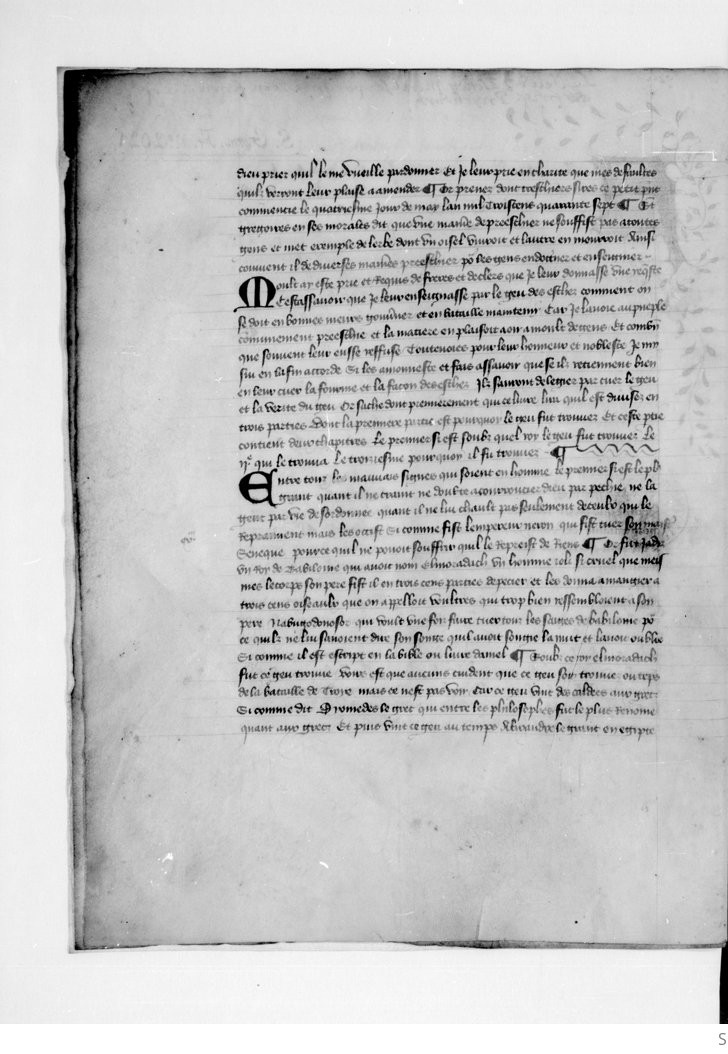 dieu prier quil le me vueille pardonner Et Je leur prie en charite que mes defaultes
quilz verront leur plaise a amender ¶ Or prenez dont treschiers sires ce petit pnt
commencie le quatriesme Jour de may lan mil troiscens quarante sept ¶ St
gregoires en ses morales dit que vne maniere de preeschier ne souffist pas a toutes
gens et met exemple de lerbe dont vn oisel viuroit et lautre en mourroit Ainsi
conuient il de diuerses manieres preeschier po les gens endottriner et enseigner
Moult ay este prie et Requis de freres et de clers que Je leur donnasse vne
Cest assauoir que Je leur enseignasse par le geu des eschez comment on
se doit en bonnes meurs gouuerner et en bataille maintenir Car Je lauoie au pueple
communement preeschie et la matiere en plaisoit a oir a moult de gens Et combien
que souuent leur eusse reffuse Toutesuoies pour leur honneur et noblesce Je my
sui en la fin accorde Si les amonneste et fais assauoir que se ilz retiennent bien
en leur cuer la fourme et la facon des eschez Ilz sauront de legier par cuer le geu
et la verite du geu Or sache dont premierement qui ce liure lira quil est diuisez en
trois parties Dont la premiere partie est pourquoy le geu fut trouuez Et ceste ptie
contient deux chapitres Le premier si est soubz quel roy le geu fut trouuez Le
ijᵉ qui le trouua Le troiziesme pourquoy il fu trouuez ¶
Entre touz les mauuais signes qui soient en homme le premier si est le pl9
grant quant il ne craint ne doubte a courroucier dieu par pechie ne la
gent par vie desordonnee quant il ne lui chault pas seulement de ceulx qui le
Reprannent mais les occist Si comme fist lempereur neron qui fist tuer son maistre
Seneque pource quil ne pouoit souffrir quil le Repreist de Riens ¶ Or fu jadis
vn Roy de Babiloine qui auoit nom Elmoradach vn homme Joli si cruel que meis
mes le corps son pere fist il en trois cens parties depecier et les donna a mangier a
trois cens oiseaulx que on appelloit voultres qui trop bien ressembloient a son
pere Nabugodonosor qui voult vne foiz faire tuer touz les saiges de babiloine po
ce quilz ne lui sauoient dire son songe quil auoit songie la nuit et lauoit oublie
Si comme il est escript en la bible ou liure daniel ¶ Soubz ce roy elmoradach
fut ce geu trouue voirs est que aucuns cuident que ce geu soit trouue ou teps
de la bataille de Troye mais ce nest pas voir Car ce geu vint des caldees aux grecz
Si comme dit Dyomedes le grec qui entre les philosophes fut le plus Renome
quant aux grecz Et puis vint ce geu au temps Alixandre le grant en egipte